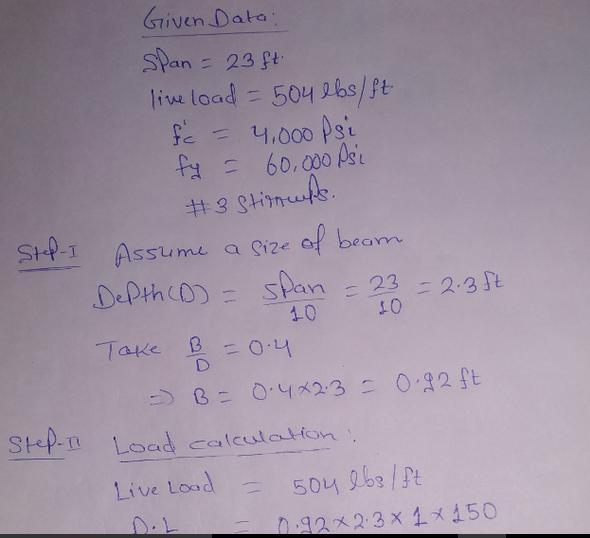 Given Data:
Span = 23 ft.
live load = 504 lbs/ft.
f'c = 4,000 Psi
fy = 60,000 Psi
#3 Stirrups.
Step-I Assume a size of beam
Depth(D) = Span/10 = 23/10 = 2.3 ft
Take B/D = 0.4
⇒ B = 0.4×2.3 = 0.92 ft
Step-II Load calculation:
Live Load = 504 lbs/ft
D.L = 0.92×2.3×1×150